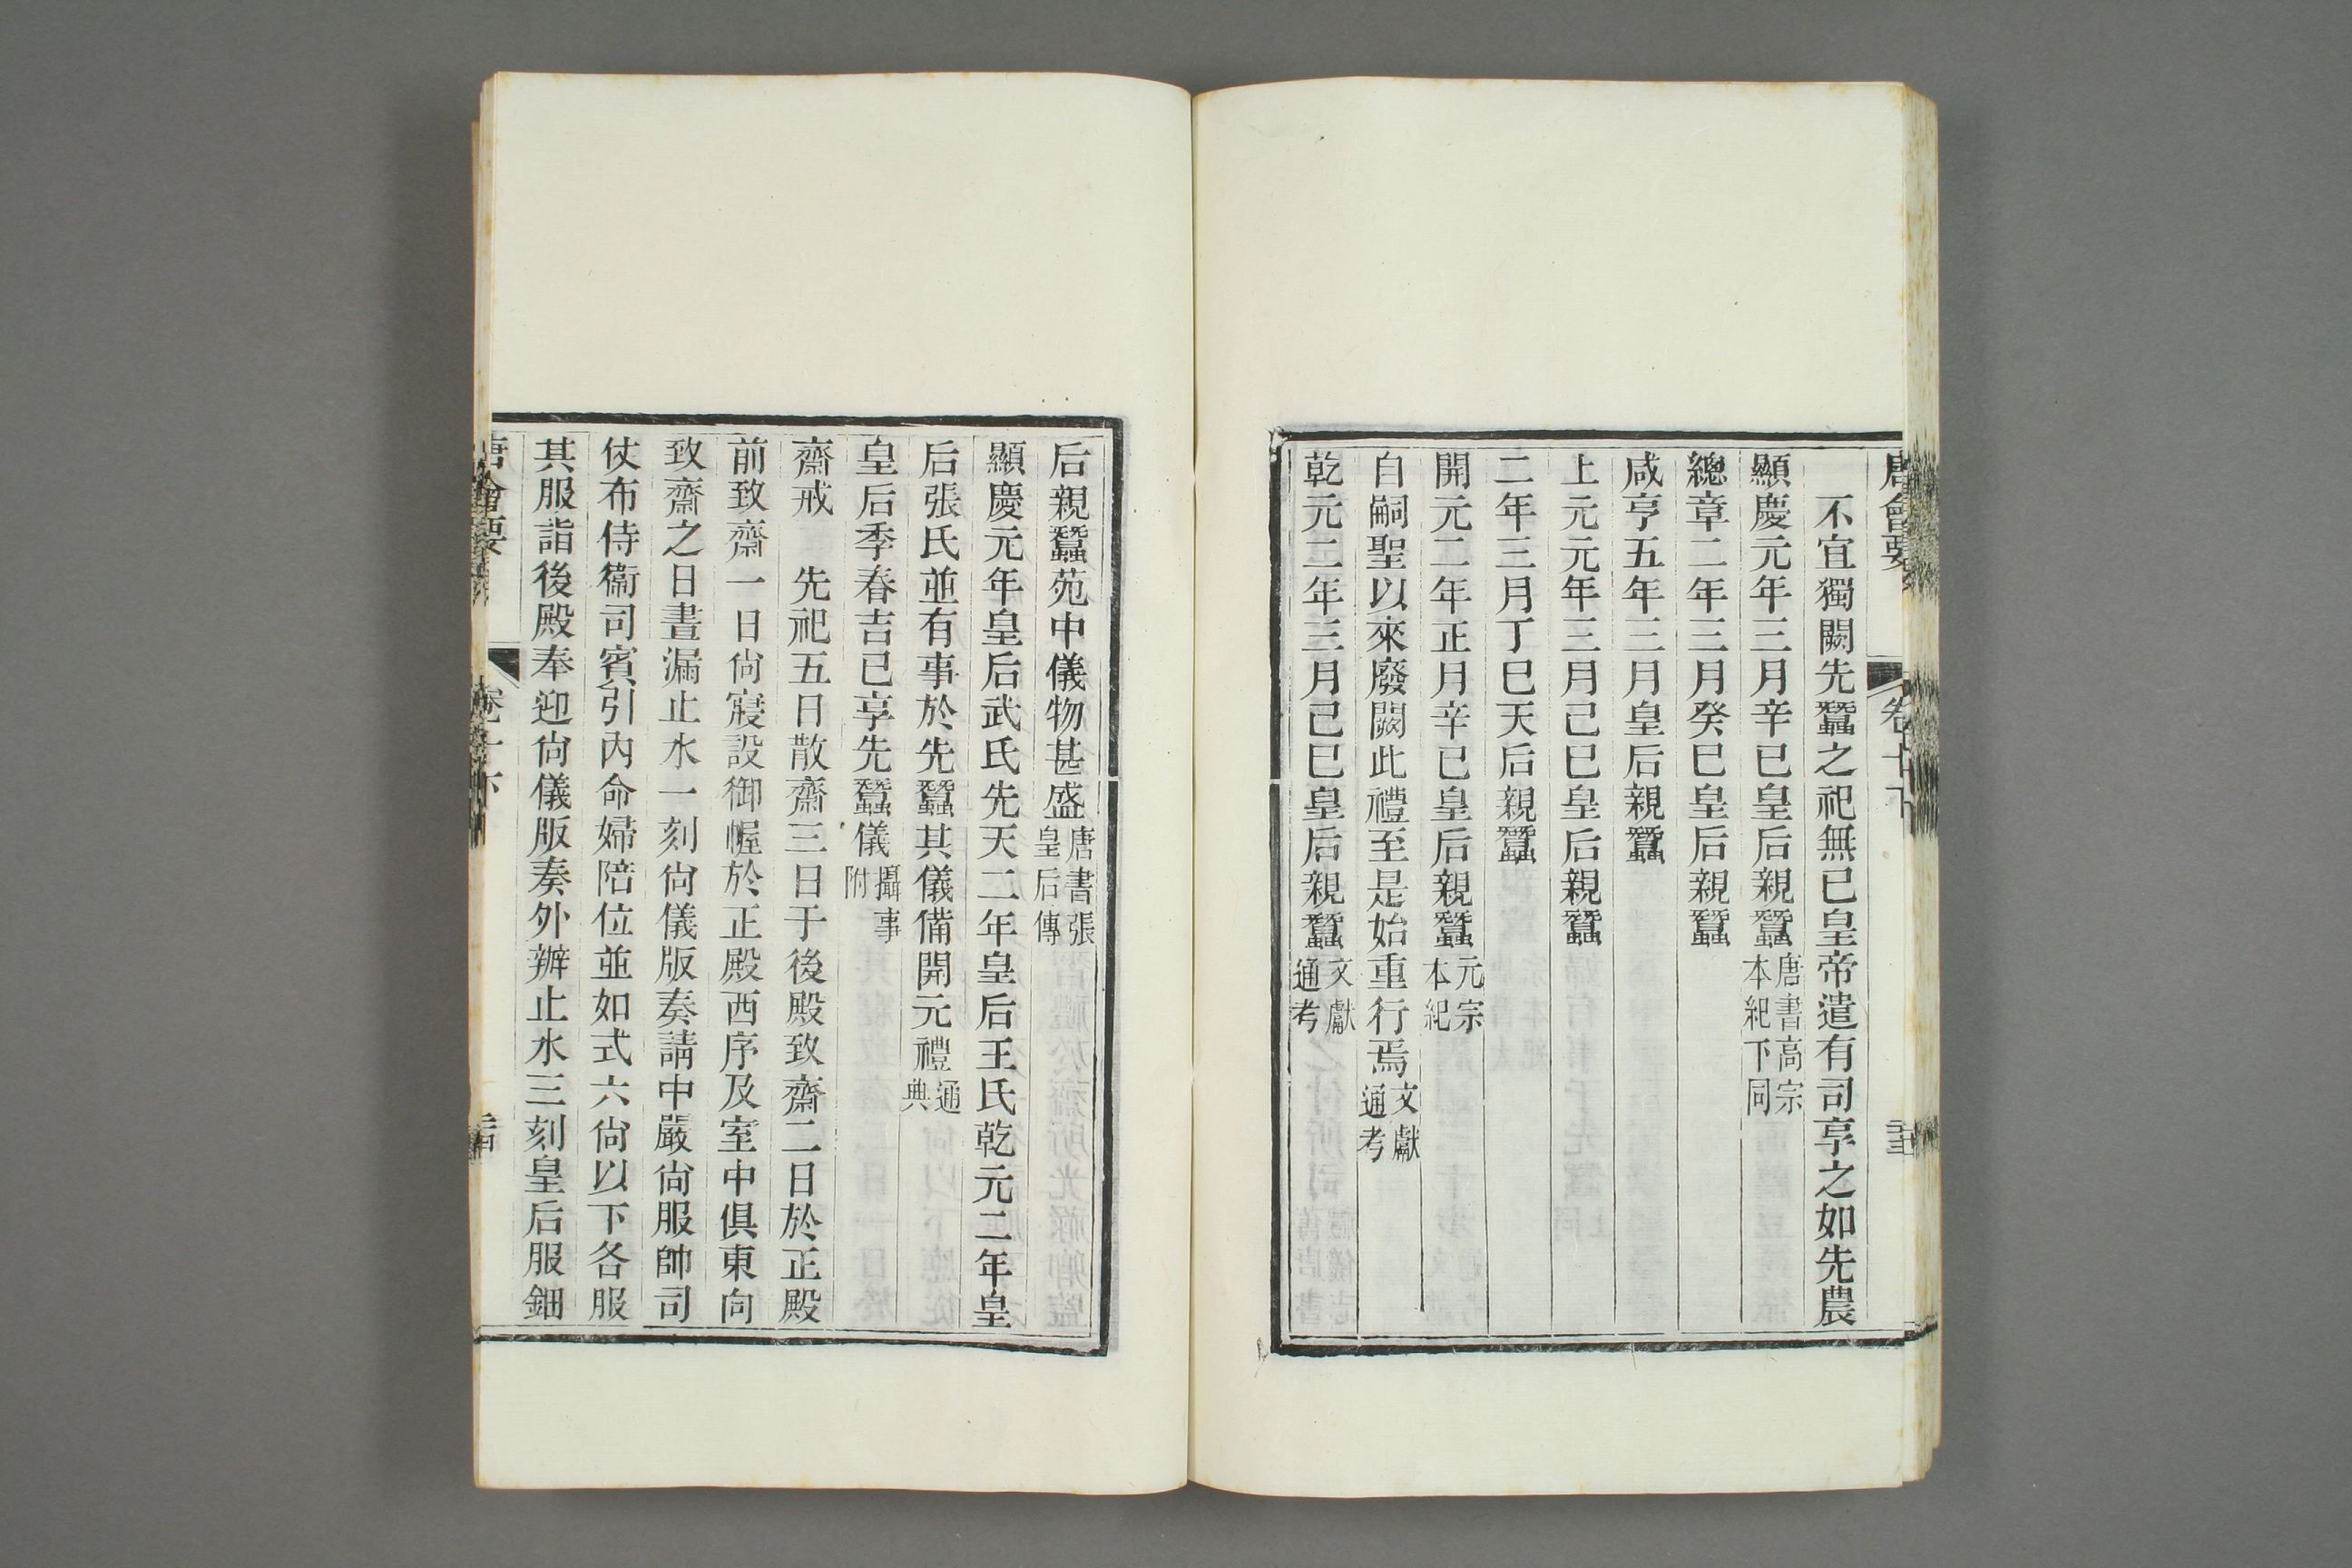 唐會要 卷十下
不宜獨闕先蠶之祀無已皇帝遣有司享之如先農
顯慶元年三月辛巳皇后親蠶唐書高宗本紀下同
總章二年三月癸巳皇后親蠶
咸亨五年三月皇后親蠶
上元元年三月己巳皇后親蠶
二年三月丁巳天后親蠶
開元二年正月辛巳皇后親蠶元宗本紀
自嗣聖以來廢闕此禮至是始重行焉文獻通考
乾元二年三月己巳皇后親蠶文獻通考
后親蠶苑中儀物甚盛唐書張皇后傳
顯慶元年皇后武氏先天二年皇后王氏乾元二年皇
后張氏並有事於先蠶其儀備開元禮通典
皇后季春吉巳享先蠶儀攝事附
齋戒　先祀五日散齋三日于後殿致齋二日於正殿
前致齋一日尙寢設御幄於正殿西序及室中俱東向
致齋之日晝漏止水一刻尙儀版奏請中嚴尙服帥司
仗布侍衞司賓引內命婦陪位並如式六尙以下各服
其服詣後殿奉迎尙儀版奏外辦止水三刻皇后服鈿
唐會要